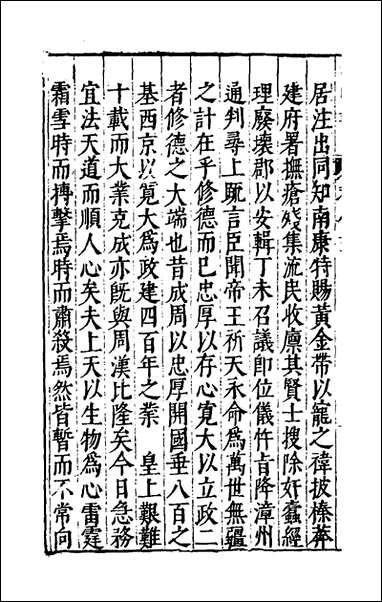 居注出同知南康特賜黃金帶以寵之禕披榛莽
建府署撫瘡殘集流民收廪其賢士搜除奸蠹經
理廢壞郡以安輯丁未召議卽位儀忤旨降漳州
通判尋上䟽言臣聞帝王祈天永命爲萬世無疆
之計在乎修德而已忠厚以存心寛大以立政二
者修德之大端也昔成周以忠厚開國垂八百之
基西京以寛大爲政建四百年之業　皇上艱難
十載而大業克成亦旣與周漢比隆矣今日急務
宜法天道而順人心矣夫上天以生物爲心雷霆
霜雪時而摶擊焉時而肅殺焉然皆暫而不常向